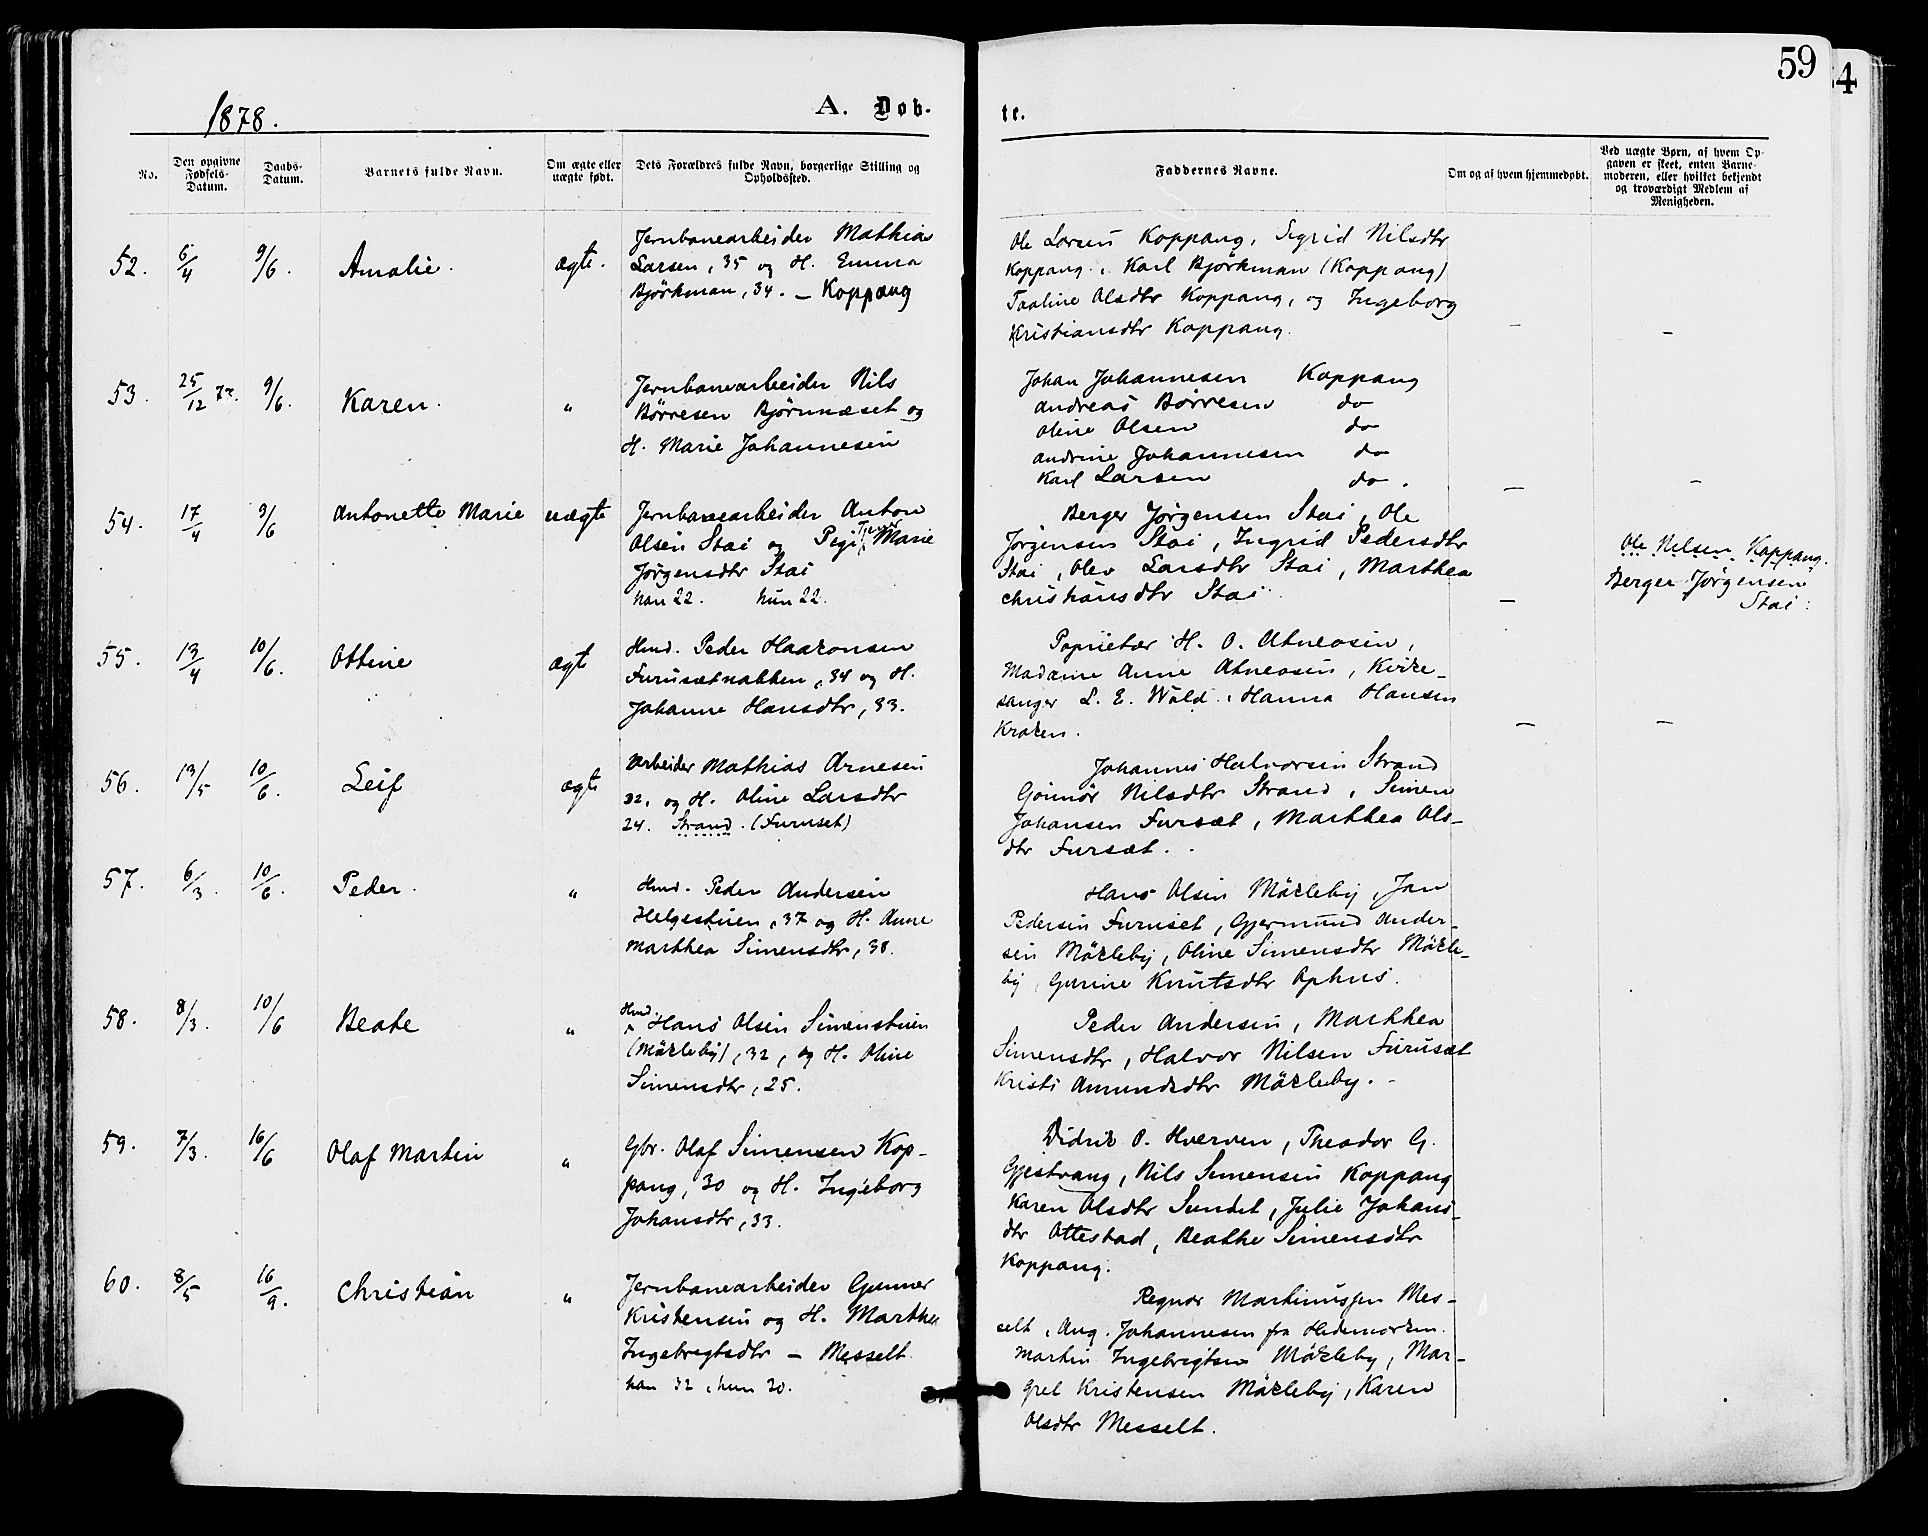 59
4
1878.
A. Døb-
te.
No.
Den opgivne
Fødsels-
Datum.
Daabs-
Datum.
Barnets fulde Navn.
Om ægte eller
uægte født.
Dets Forældres fulde Navn, borgerlige Stilling og
Opholdssted.
Faddernes Navne.
Om og af hvem hjemmedøbt.
Ved uægte Børn, af hvem Op-
gaven er skeet, enten Barne-
moderen, eller hvilket bekjendt
og troværdigt Medlem af
Menigheden.
52. 6/4 9/6. Amalie. ægte.
Jernbanearbeider Mathias
Larsen, 35 og H. Emma
Björkman, 34. – Koppang
Ole Larsen Koppang, Sigrid Nilsdtr
Koppang, Karl Björkman (Koppang)
Olsdtr Koppang, og Ingeborg
Kristiansdtr Koppang. – –
53. 25/12 77. 9/6. Karen. "
Jernbanearbeider Nils
Börresen Björnnæset og
H. Marie Johannesen
Johan Johannesen Koppang
Andreas Börresen do
Oline Olsen do
Andrine Johannesen do
Karl Larsen do. – –
54. 17/4 9/6 Antonette Marie uægte
Jernbanearbeider Anton
Olsen Stai og Marie
Jörgensdtr Stai
han 22. hun 22.
Berger Jörgensen Stai, Ole
Jörgensen Stai, Ingrid Pedersdtr
Stai, Olev Larsdtr Stai, Marthea
Christiansdtr Stai. –
Ole Nilsen Koppang.
Berger Jörgensen
Stai.
55. 13/4 10/6. Ottine ægte
Hmd. Peder Haakonsen
Furusætnabben, 34 og H.
Johanne Hansdtr, 33.
Poprietær H. O. Atneosen,
Madame Anne Atneosen, Kirke-
sanger L. E. Wold, Hanna Hansen
Kroken. – –
56. 13/5 10/6. Leif ægte
Arbeider Mathias Arnesen
32, og H. Oline Larsdtr
24. Strand. (Furuset)
Johannes Halvorsen Strand
Gönnör Nilsdtr Strand, Simen
Johansen Fursæt, Marthea Ols-
dtr Fursæt.
57. 6/3. 10/6. Peder. "
Hmd. Peder Andersen
Helgestuen, 37 og H. Anne
Marthea Simensdtr, 38.
Hans Olsen Mökleby, Jan
Pedersen Furuset, Gjermund Ander-
sen Mökleby, Oline Simensdtr Mökle-
by, Gurine Knutsdtr Ophus.
58. 8/3. 10/6 Beate "
Hmd. Hans Olsen Simenstuen
(Mökleby), 32, og H. Oline
Simensdtr, 25.
Peder Andersen, Marthea
Simensdtr, Halvor Nilsen Furusæt
Kristi Amundsdtr Mökleby.
59. 7/3. 16/6 Olaf Martin "
Gbr. Olaf Simensen Kop-
pang, 30 og H. Ingeborg
Johansdtr, 33.
Didrik O. Hverven, Theodor G.
Gjestvang, Nils Simensen Koppang
Karen Olsdtr Sundet, Julie Johans-
dtr Ottestad, Beathe Simensdtr
Koppang.
60. 8/5 16/9. Christian "
Jernbanearbeider Gunner
Kristensen og H. Marthea
Ingebregtsdtr – Messelt
han 32, hun 30.
Regnor Martinussen Mes-
selt, Aug. Johannesen fra Hedemarken.
Martin Ingebrigtsen Mökleby, Mar-
gret Kristensen Mökleby, Karen
Olsdtr Messelt.